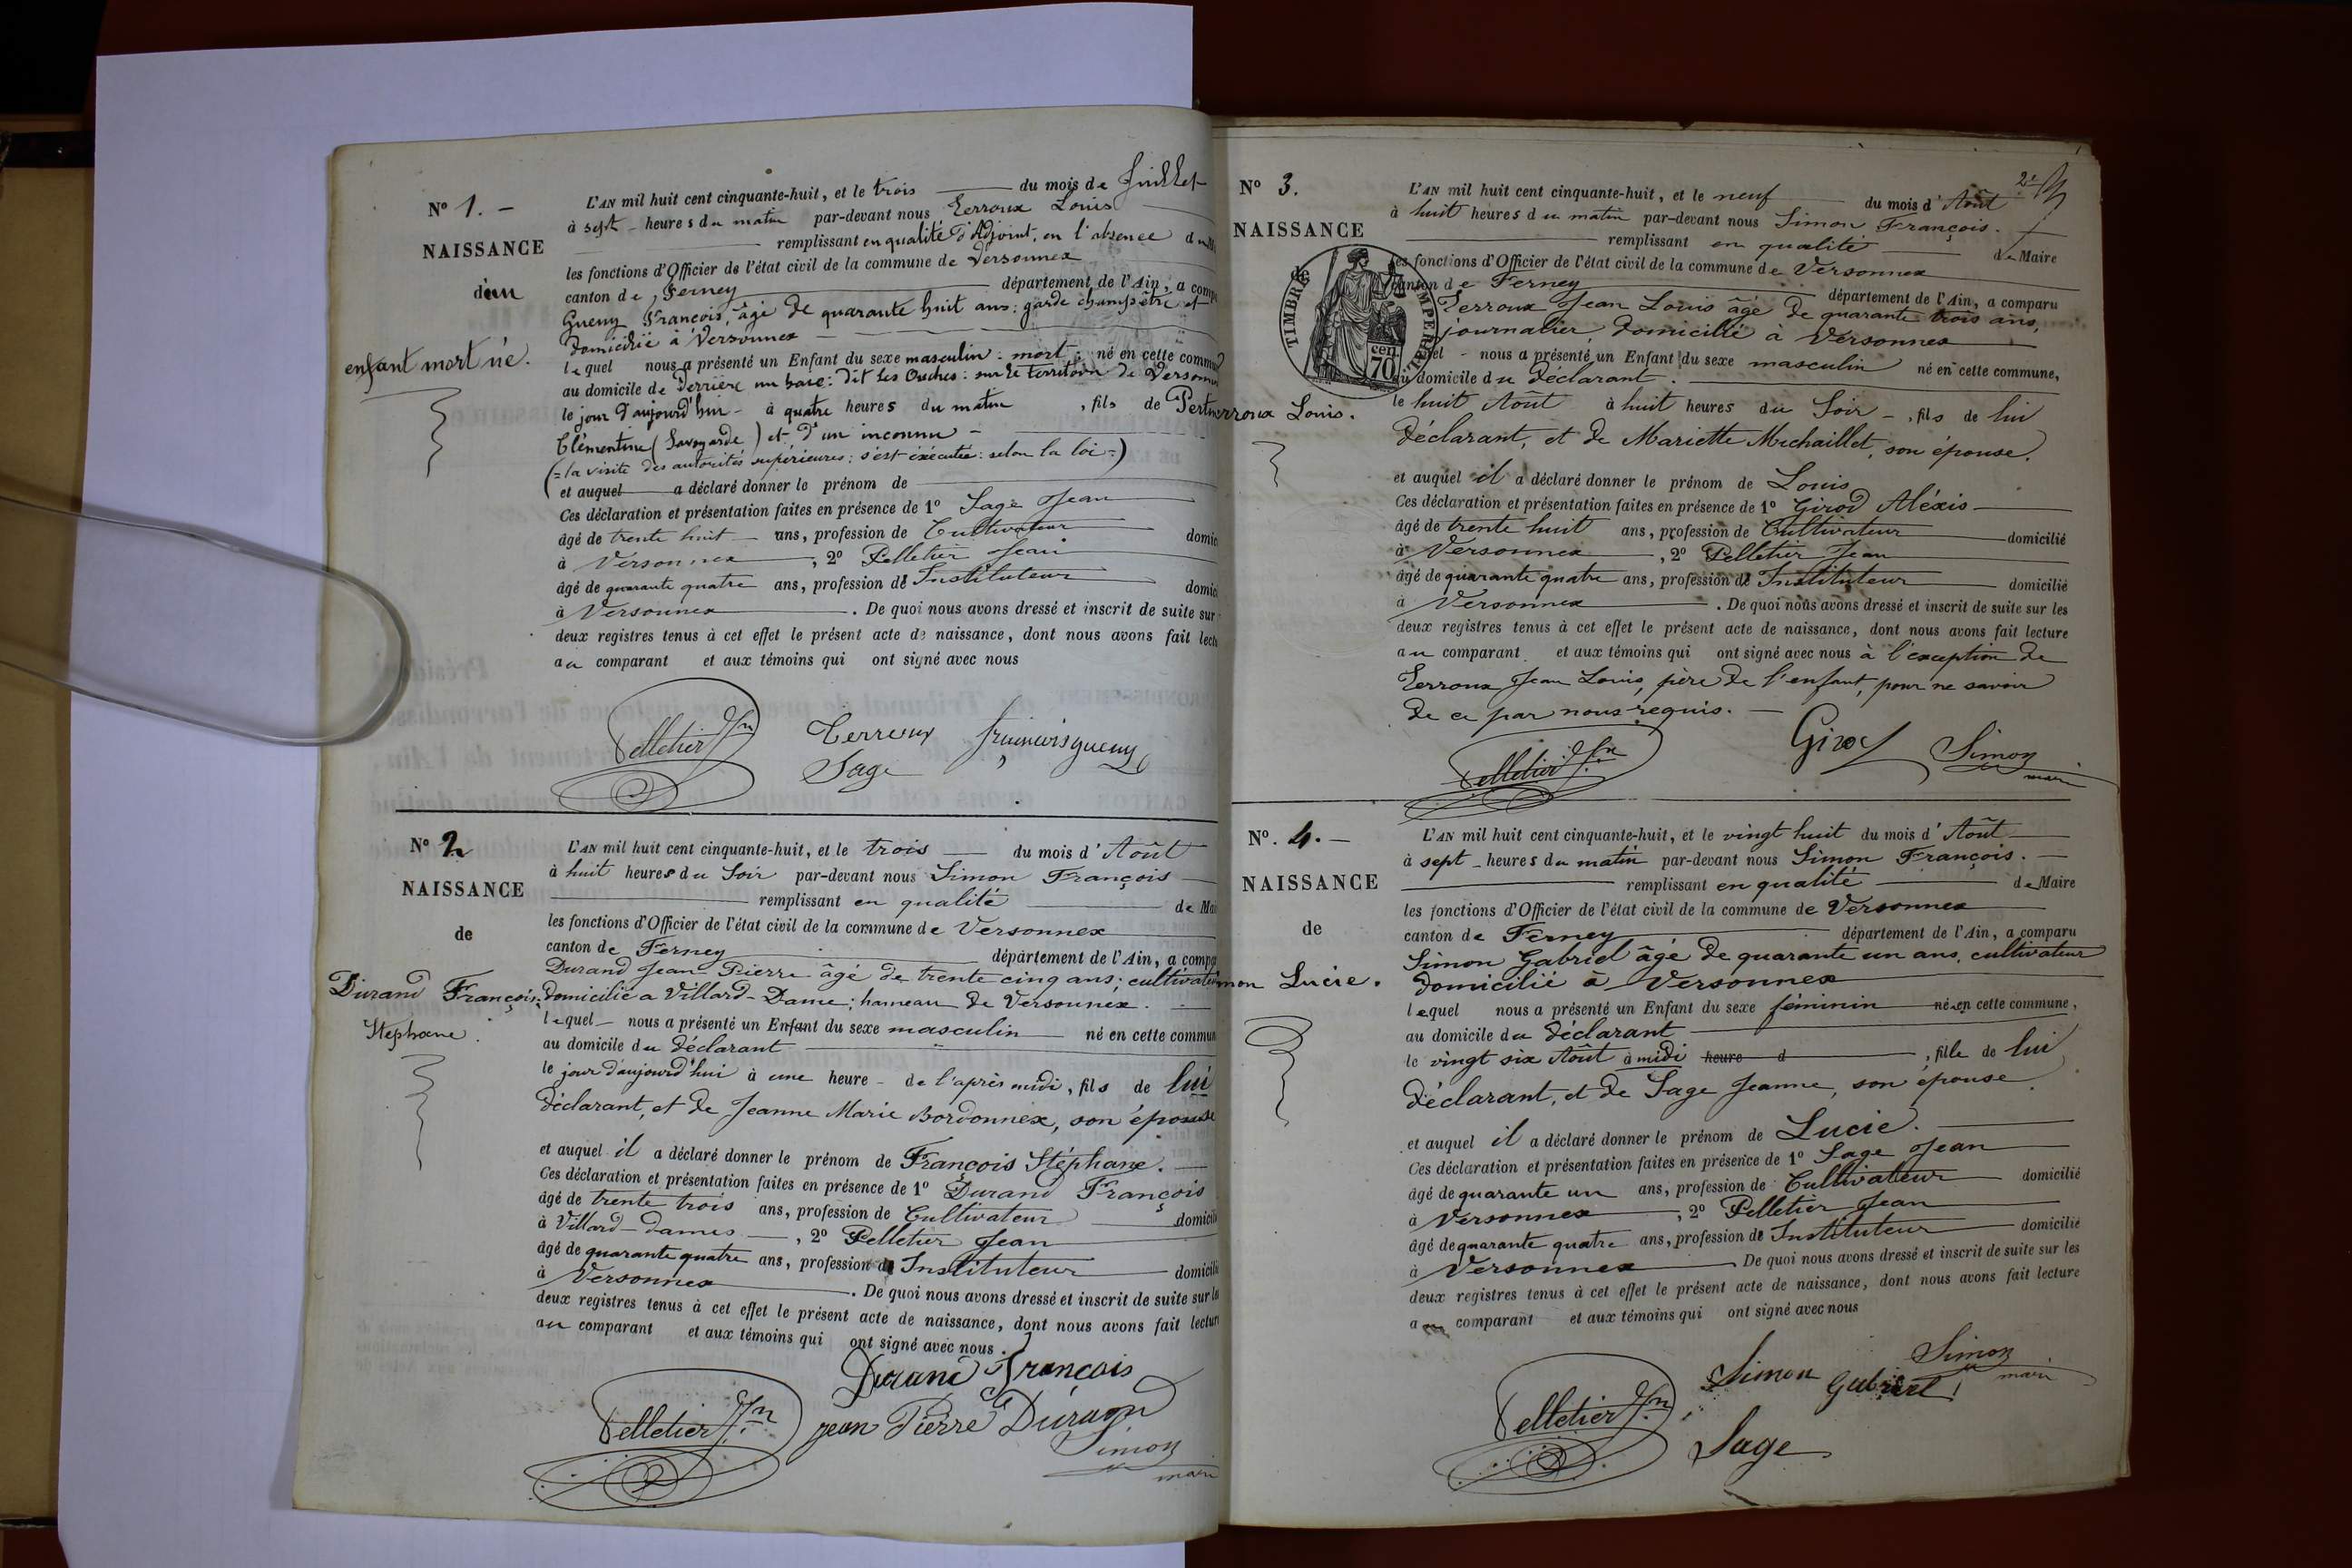 N° 1. -
NAISSANCE
d'un
enfant mort né.
L'AN mil huit cent cinquante-huit, et le trois du mois de Juillet
à sept heures du matin par-devant nous Terroux Louis
remplissant en qualité d'Adjoint, en l'absence
les fonctions d'Officier de l'état civil de la commune de Versonnex
canton de Ferney département de l'Ain, a comp
Gueny François, âgé de quarante huit ans : garde champêtre et
domicilié à Versonnex
lequel nous a présenté un Enfant du sexe masculin : mort : né en cette commu
au domicile de Derrière une haie : dit les Ouches : sur le territoire de Versonn
le jour d'aujourd'hui - à quatre heures du matin , fils de
Clémentine (Savoyarde) et d'un inconnu -
(= la visite des autorités supérieures : s'est exécutée : selon la loi =)
et auquel a déclaré donner le prénom de
Ces déclaration et présentation faites en présence de 1° Sage Jean
âgé de trente huit ans, profession de Cultivateur domic
à Versonnex , 2° Pelletier Jean
âgé de quarante quatre ans, profession de Instituteur domic
à Versonnex . De quoi nous avons dressé et inscrit de suite sur
deux registres tenus à cet effet le présent acte de naissance, dont nous avons fait lectu
au comparant et aux témoins qui ont signé avec nous
Pelletier Jn Terroux françois gueny
Sage
N° 2
NAISSANCE
de
Durand François
Stéphane.
L'AN mil huit cent cinquante-huit, et le trois du mois d'Août
à huit heures du Soir par-devant nous Simon François
remplissant en qualité de Mai
les fonctions d'Officier de l'état civil de la commune de Versonnex
canton de Ferney département de l'Ain, a compa
Durand Jean Pierre âgé de trente cinq ans ; cultivate
domicilié a Villard-Dame ; hameau de Versonnex.
lequel nous a présenté un Enfant du sexe masculin né en cette commun
au domicile du Déclarant
le jour d'aujourd'hui à une heure - de l'après midi, fils de lui
déclarant, et de Jeanne Marie Bordonnex, son épouse
et auquel il a déclaré donner le prénom de François Stéphane.
Ces déclaration et présentation faites en présence de 1° Durand François
âgé de trente trois ans, profession de Cultivateur domicili
à Villard-dames , 2° Pelletier Jean
âgé de quarante quatre ans, profession de Instituteur domicili
à Versonnex . De quoi nous avons dressé et inscrit de suite sur le
deux registres tenus à cet effet le présent acte de naissance, dont nous avons fait lectur
au comparant et aux témoins qui ont signé avec nous.
Durand François
Pelletier Jn jean Pierre Durand
Simon
maire
2e
N° 3.
NAISSANCE
TIMBRE IMPERIAL
70 cen.
erroux Louis.
L'AN mil huit cent cinquante-huit, et le neuf du mois d'Août
à huit heures du matin par-devant nous Simon François.
remplissant en qualité de Maire
les fonctions d'Officier de l'état civil de la commune de Versonnex
canton de Ferney département de l'Ain, a comparu
Terroux Jean Louis âgé de quarante trois ans,
journalier, domicilié à Versonnex
el nous a présenté un Enfant du sexe masculin né en cette commune,
au domicile du déclarant.
le huit Août à huit heures du Soir -, fils de lui
déclarant, et de Mariette Michaillet, son épouse.
et auquel il a déclaré donner le prénom de Louis
Ces déclaration et présentation faites en présence de 1° Girod Aléxis
âgé de trente huit ans, profession de Cultivateur domicilié
à Versonnex , 2° Pelletier Jean
âgé de quarante quatre ans, profession de Instituteur domicilié
à Versonnex . De quoi nous avons dressé et inscrit de suite sur les
deux registres tenus à cet effet le présent acte de naissance, dont nous avons fait lecture
au comparant et aux témoins qui ont signé avec nous à l'exception de
Terroux Jean Louis, père de l'enfant, pour ne savoir
de ce par nous requis.
Pelletier Jn Girod Simon
maire
N°. 4. -
NAISSANCE
de
mon Lucie.
L'AN mil huit cent cinquante-huit, et le vingt huit du mois d'Août
à sept heures du matin par-devant nous Simon François.
remplissant en qualité de Maire
les fonctions d'Officier de l'état civil de la commune de Versonnex
canton de Ferney département de l'Ain, a comparu
Simon Gabriel âgé de quarante un ans, cultivateur
domicilié à Versonnex
lequel nous a présenté un Enfant du sexe féminin né en cette commune,
au domicile du déclarant
le vingt six Août à midi heure d , fille de lui
déclarant, et de Sage Jeanne, son épouse
et auquel il a déclaré donner le prénom de Lucie.
Ces déclaration et présentation faites en présence de 1° Sage Jean
âgé de quarante un ans, profession de Cultivateur domicilié
à Versonnex , 2° Pelletier Jean
âgé de quarante quatre ans, profession de Instituteur domicilié
à Versonnex De quoi nous avons dressé et inscrit de suite sur les
deux registres tenus à cet effet le présent acte de naissance, dont nous avons fait lecture
au comparant et aux témoins qui ont signé avec nous
Simon
maire
Pelletier Jn Simon Gabriel
Sage